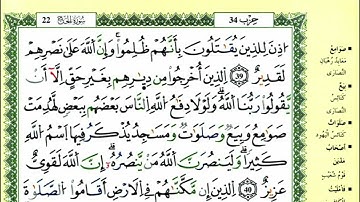 22 سُورَةُ الحَجّ حِزْب 34
أُذِنَ لِلَّذِينَ يُقَٰتَلُونَ بِأَنَّهُمْ ظُلِمُوا۟ۚ وَإِنَّ ٱللَّهَ عَلَىٰ نَصْرِهِمْ
لَقَدِيرٌ 39 ٱلَّذِينَ أُخْرِجُوا۟ مِن دِيَٰرِهِم بِغَيْرِ حَقٍّ إِلَّآ أَن
يَقُولُوا۟ رَبُّنَا ٱللَّهُۗ وَلَوْلَا دَفْعُ ٱللَّهِ ٱلنَّاسَ بَعْضَهُم بِبَعْضٍ لَّهُدِّمَتْ
صَوَٰمِعُ وَبِيَعٌ وَصَلَوَٰتٌ وَمَسَٰجِدُ يُذْكَرُ فِيهَا ٱسْمُ ٱللَّهِ
كَثِيرًاۗ وَلَيَنصُرَنَّ ٱللَّهُ مَن يَنصُرُهُۥٓۗ إِنَّ ٱللَّهَ لَقَوِىٌّ
عَزِيزٌ 40 ٱلَّذِينَ إِن مَّكَّنَّٰهُمْ فِى ٱلْأَرْضِ أَقَامُوا۟ ٱلصَّلَوٰةَ
صَوَامِعُ
مَعَابِدُ رُهْبَانِ
النَّصَارَى
بِيَعٌ
كَنَائِسُ
النَّصَارَى
صَلَوَاتٌ
كَنَائِسُ اليَهُودِ